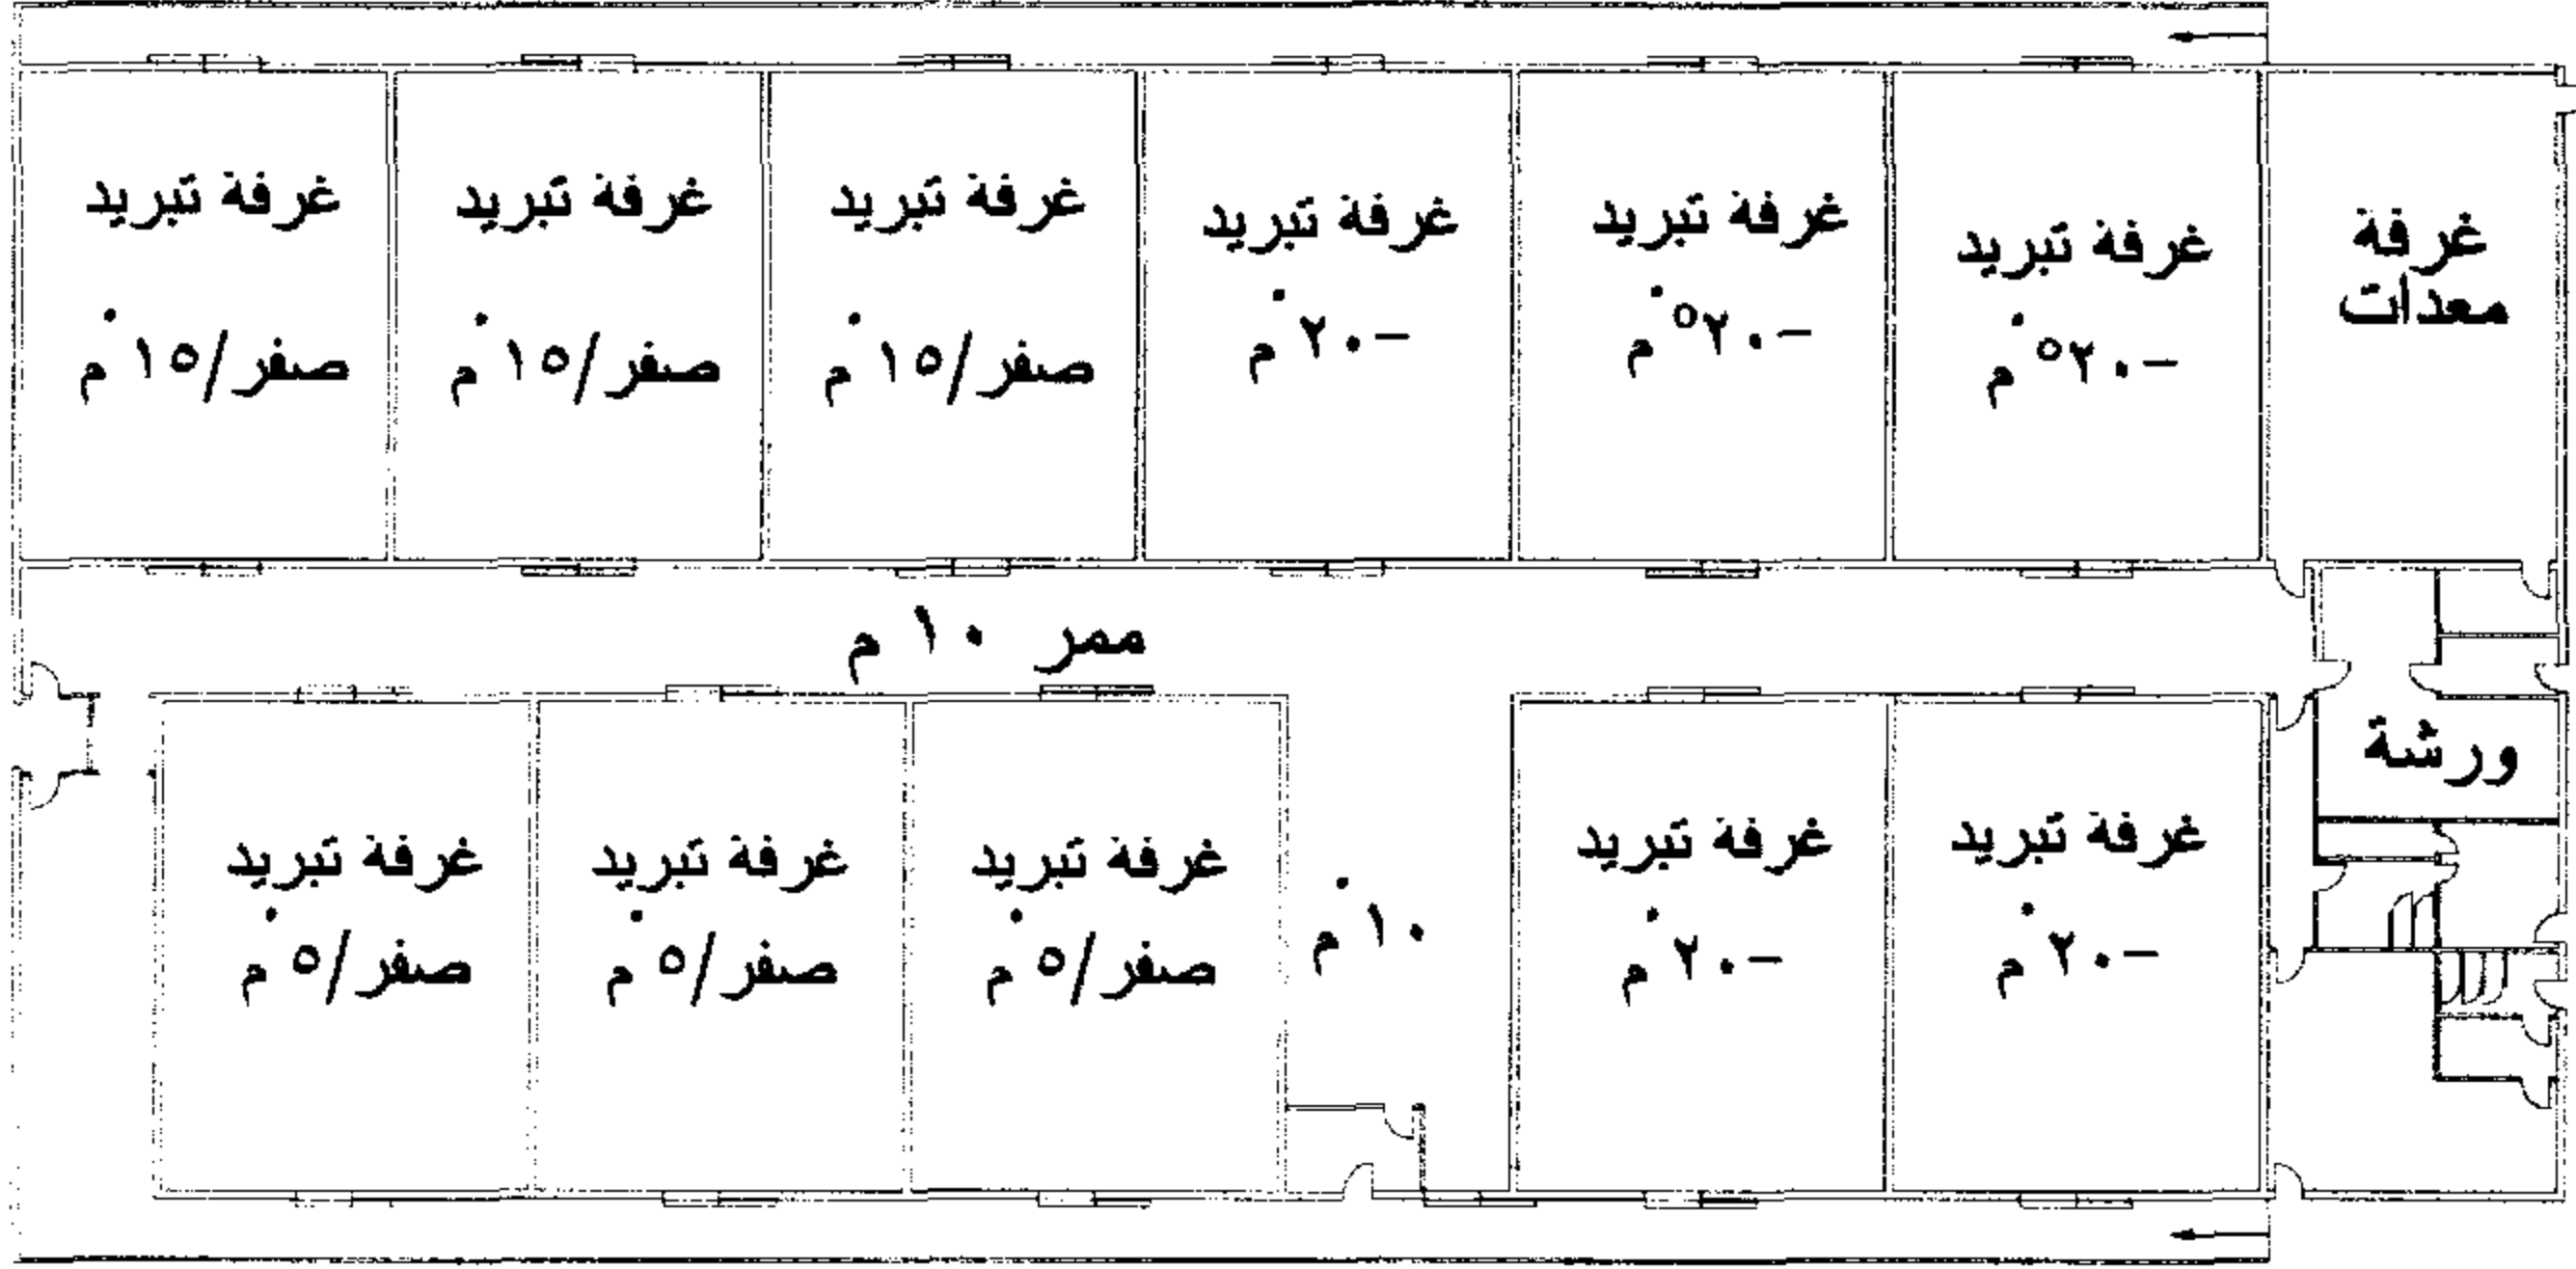 غرفة
معدات
غرفة تبريد
-٢٠°م
غرفة تبريد
-٢٠°م
غرفة تبريد
-٢٠°م
غرفة تبريد
صفر/١٥°م
غرفة تبريد
صفر/١٥°م
غرفة تبريد
صفر/١٥°م
ممر ١٠ م
ورشة
غرفة تبريد
-٢٠°م
غرفة تبريد
-٢٠°م
١٠°م
غرفة تبريد
صفر/٥°م
غرفة تبريد
صفر/٥°م
غرفة تبريد
صفر/٥°م